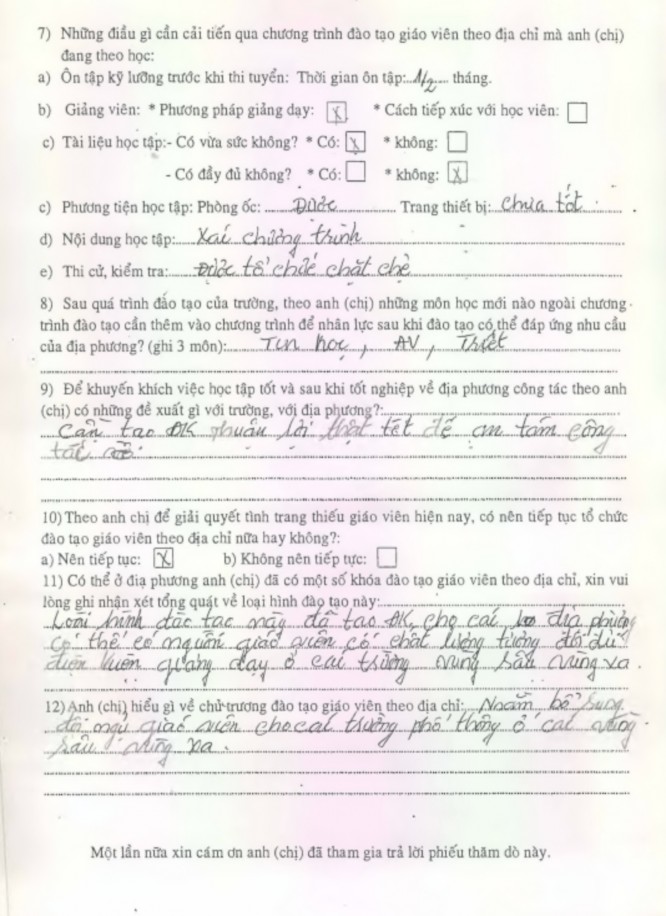 7) Những điều gì cần cải tiến qua chương trình đào tạo giáo viên theo địa chỉ mà anh (chị)
đang theo học:
a) Ôn tập kỹ lưỡng trước khi thi tuyển: Thời gian ôn tập: 1/2 tháng.
b) Giảng viên: * Phương pháp giảng dạy: [X] * Cách tiếp xúc với học viên: [ ]
c) Tài liệu học tập:- Có vừa sức không? * Có: [X] * không: [ ]
- Có đầy đủ không? * Có: [ ] * không: [X]
c) Phương tiện học tập: Phòng ốc: Được Trang thiết bị: chưa tốt
d) Nội dung học tập: chương trình
e) Thi cử, kiểm tra: Được tổ chức chặt chẽ
8) Sau quá trình đào tạo của trường, theo anh (chị) những môn học mới nào ngoài chương
trình đào tạo cần thêm vào chương trình để nhân lực sau khi đào tạo có thể đáp ứng nhu cầu
của địa phương? (ghi 3 môn): Tin học, AV, Triết
9) Để khuyến khích việc học tập tốt và sau khi tốt nghiệp về địa phương công tác theo anh
(chị) có những đề xuất gì với trường, với địa phương?:
Cần tạo ĐK thuận lợi thật tốt để an tâm công
tác
10) Theo anh chị để giải quyết tình trạng thiếu giáo viên hiện nay, có nên tiếp tục tổ chức
đào tạo giáo viên theo địa chỉ nữa hay không?:
a) Nên tiếp tục: [X] b) Không nên tiếp tực: [ ]
11) Có thể ở điạ phương anh (chị) đã có một số khóa đào tạo giáo viên theo địa chỉ, xin vui
lòng ghi nhận xét tổng quát về loại hình đào tạo này:
Loại hình đào tạo này đã tạo ĐK cho các địa phương
có thể có nguồn giáo viên có chất lượng tương đối đủ
điều kiện giảng dạy ở các trường vùng sâu vùng xa.
12) Anh (chị) hiểu gì về chủ trương đào tạo giáo viên theo địa chỉ: Nhằm bổ sung
đội ngũ giáo viên cho các trường phổ thông ở các vùng
sâu vùng xa.
Một lần nữa xin cám ơn anh (chị) đã tham gia trả lời phiếu thăm dò này.